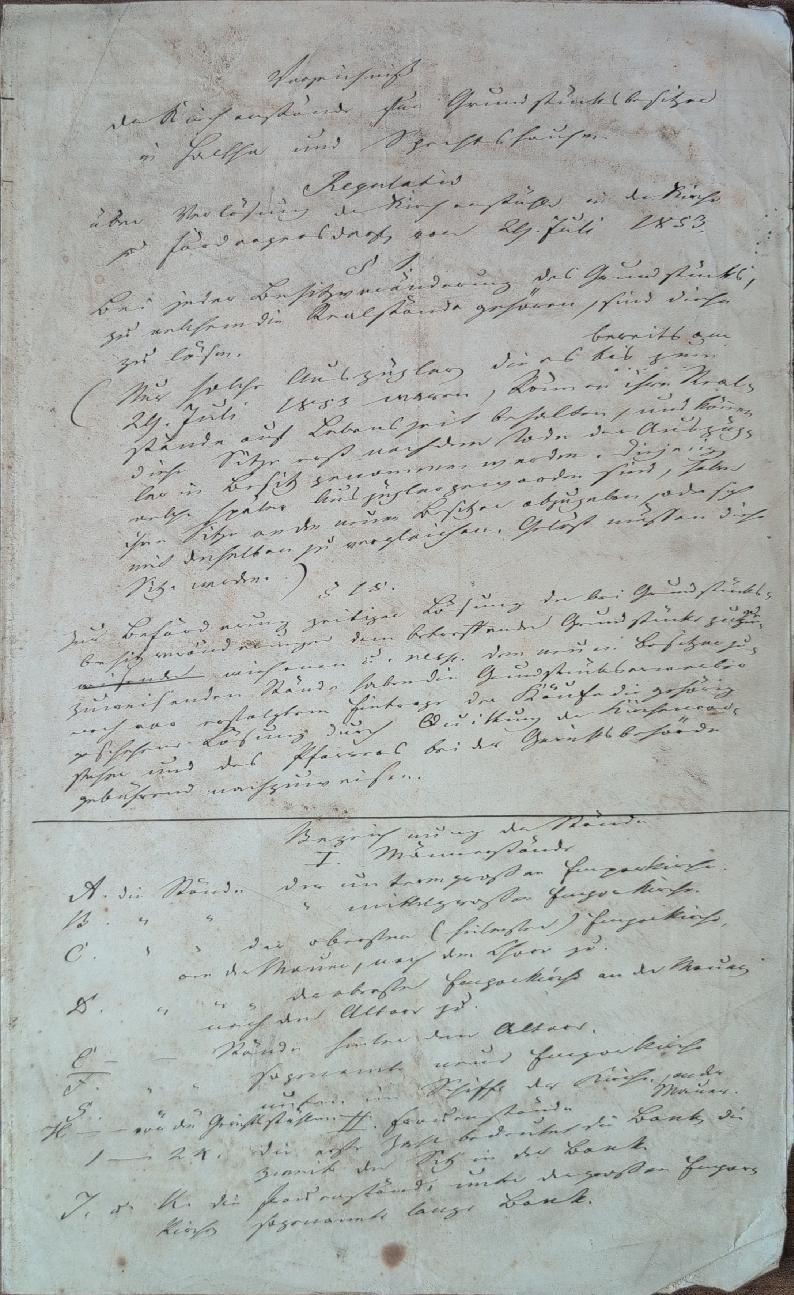 Verzeichniß
der Kirchenstände für Grundstücksbesitzer
in und Spechtshausen.
Regulativ
über Verlösung der Kirchenstühle in der Kirche
zu Fördergersdorf vom 24. Juli 1853.
§ 1.
Bei jeder Besitzveränderung des Grundstücks,
zu welchem die Realstände gehören, sind diese
zu lösen.
(Nur solche Auszügler, die es bereits am
24. Juli 1853 waren, können ihre Real-
stände auf Lebenszeit behalten, und können
diese Sitze erst nach dem Tode der Auszüg-
ler in Besitz genommen werden. Diejenigen
welche später Auszügler geworden sind, haben
ihre Sitze an den neuen Besitzer abzugeben, oder sich
mit denselben zu vergleichen. Gelöst müssen diese
Sitze werden.)
§ 18.
Zur Beförderung zeitiger Lösung der bei Grundstücks-
besitzveränderungen dem betreffenden Grundstücke
u. resp. dem neuen Besitzer zu-
zuweisenden Stände haben die Grundstückserwerber
noch vor erfolgtem Eintrage der Käufe die gehörig
geschehene Lösung durch Quittung der Kirchenvor-
steher und des Pfarrers bei der Gerichtsbehörde
gebührend nachzuweisen.
Bezeichnung der Stände
I. Männerstände
A. die Stände der untern großen Emporkirche.
B. " " " mittelgroßen Emporkirche.
C. " " der obersten ( ) Emporkirche,
an der Mauer, nach dem Chor zu.
D. " " " der obersten Emporkirche an der Mauer
nach den Altar zu.
E. — — Stände hinter dem Altar.
F. " " sogenannte neue Emporkirche
G. unten im Schiffe der Kirche, an der Mauer.
H — vor die Gerichtsstühlen II. Frauenstände
1 — 24. die erste Zahl bedeutet die Bank, die
zweite der Sitz in der Bank
J. u. K. die Frauenstände, unter der großen Empor-
kirche sogenannte lange Bank.